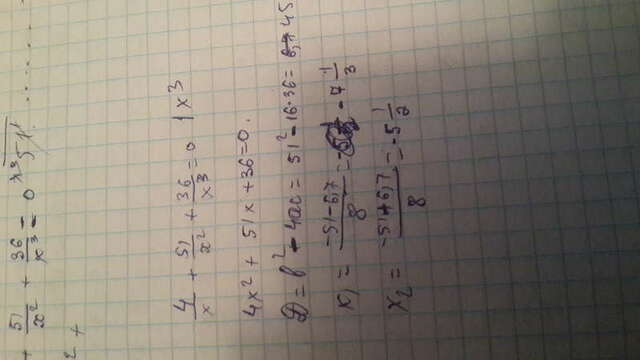 + 51/x² + 36/x³ = 0
² +
4/x + 51/x² + 36/x³ = 0 | x³
4x² + 51x + 36 = 0.
D = b² - 4ac = 51² - 16·36 = 45
x₁ = (-51 - 6,7)/8 = -7 1/3
x₂ = (-51 + 6,7)/8 = -5 1/2